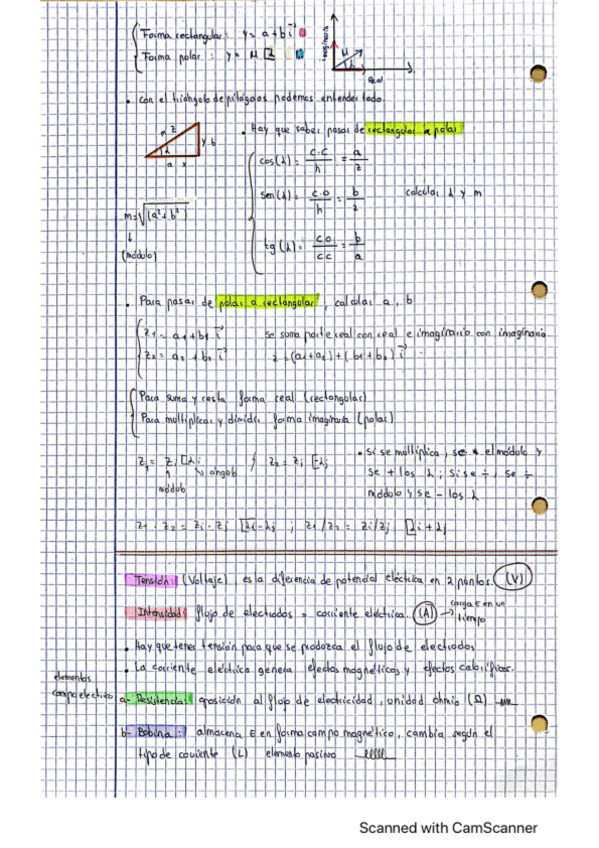 Forma rectangular: y = a + b i
Forma polar: y = M
Real
· Con el triángulo de pitágoras podemos entender todo.
· Hay que saber pasar de rectangular a polar
z
y b
a x
cos(λ) = c.c/h = a/z
m = √(a² + b²)
sen(λ) = c.o/h = b/z calcular λ y m
(módulo)
tg(λ) = co/cc = b/a
· Para pasar de polar a rectangular, calcular a, b
z1 = a1 + b1 i se suma parte real con real e imaginario con imaginario
z2 = a2 + b2 i z = (a1+a2) + (b1+b2) i
Para suma y resta forma real (rectangular)
Para multiplicar y dividir forma imaginaria (polar)
· si se multiplica, se × el módulo y
z1 = zi ∠λi ; z2 = zj ∠λj se + los λ; si se ÷, se ÷
ángulo
módulo módulo y se - los λ
z1 · z2 = zi · zj ∠λi - λj ; z1/z2 = zi/zj ∠λi + λj
Tensión: (Voltaje), es la diferencia de potencial eléctrica en 2 puntos. (V)
Intensidad: flujo de electrodos = corriente eléctrica. (A) → carga E en un
tiempo
· Hay que tener tensión para que se produzca el flujo de electrodos
· La corriente eléctrica genera efectos magnéticos y efectos caloríficos.
elementos
campo electrico a- Resistencia: oposición al flujo de electricidad, unidad ohnio (Ω)
b- Bobina: almacena E en forma campo magnético, cambia según el
tipo de couiente (L) elemento pasivo
Scanned with CamScanner